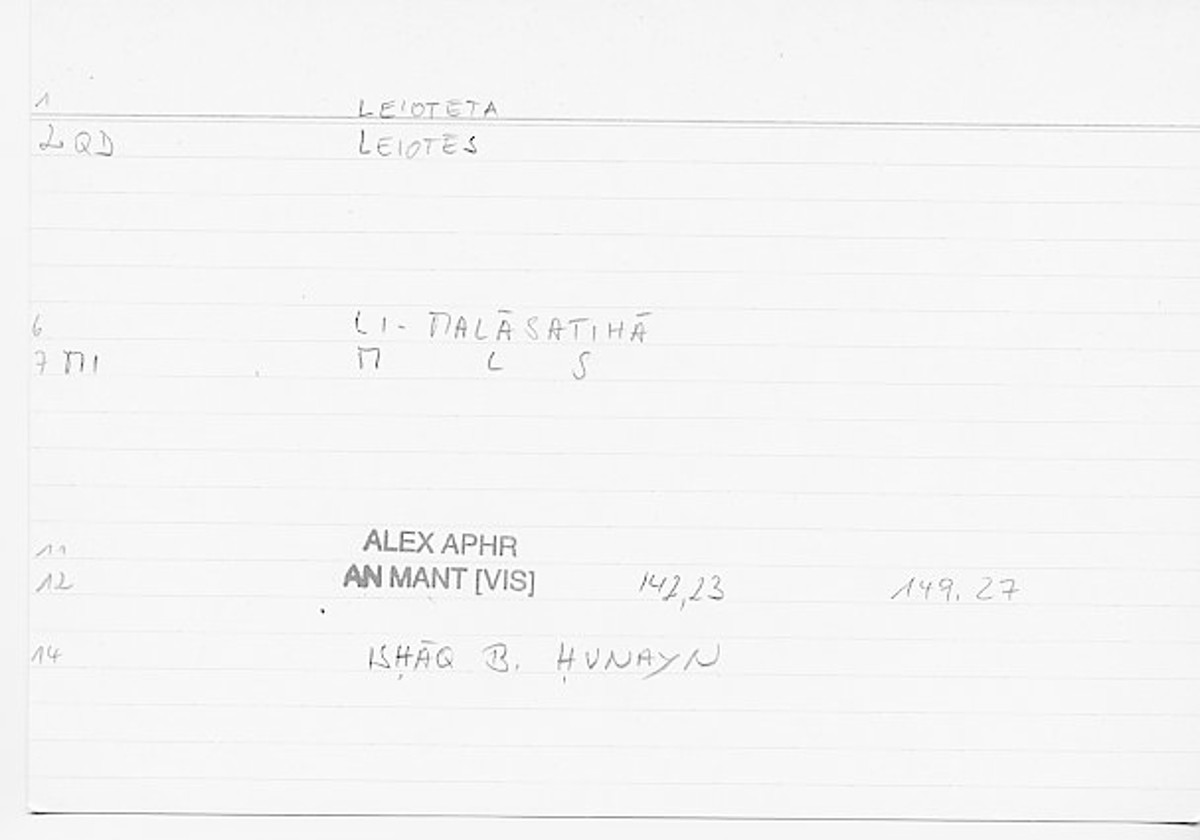 1 LEIOTETA
2 QD LEIOTES
6 LI- MALĀSATIHĀ
7 MI M L S
11 ALEX APHR
12 AN MANT [VIS] 142,23 149. 27
14 ISḤĀQ B. ḤUNAYN